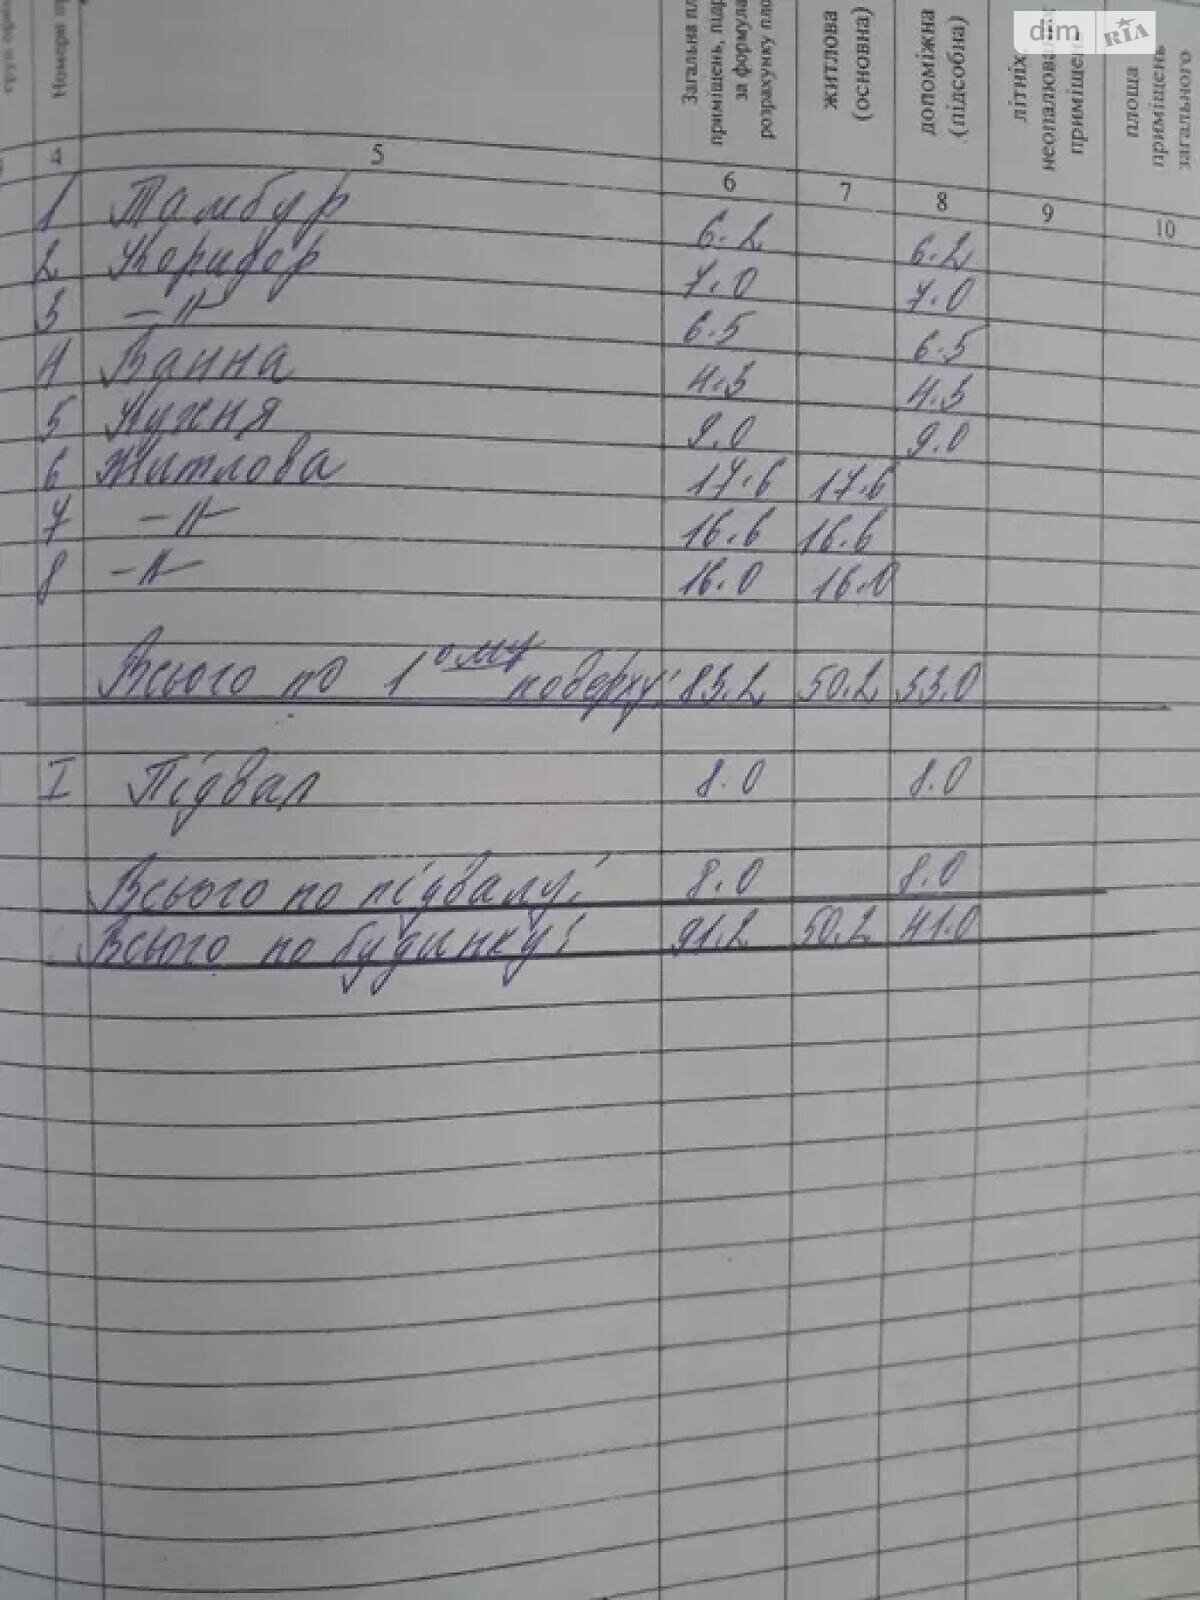 dim RIA
Номери
Загальна
приміщень,
за формула
розрахунку
житлова
(основна)
допоміжна
(підсобна)
літніх,
неопалюваних
приміщень
площа
приміщень
загального
4 5 6 7 8 9 10
1 Тамбур 6.2 6.2
2 Коридор 7.0 7.0
3 -//- 6.5 6.5
4 Ванна 4.3 4.3
5 Кухня 9.0 9.0
6 Житлова 17.6 17.6
7 -//- 16.6 16.6
8 -//- 16.0 16.0
Всього по 1ому поверху: 83.2 50.2 33.0
I Підвал 8.0 8.0
Всього по підвалу: 8.0 8.0
Всього по будинку: 91.2 50.2 41.0